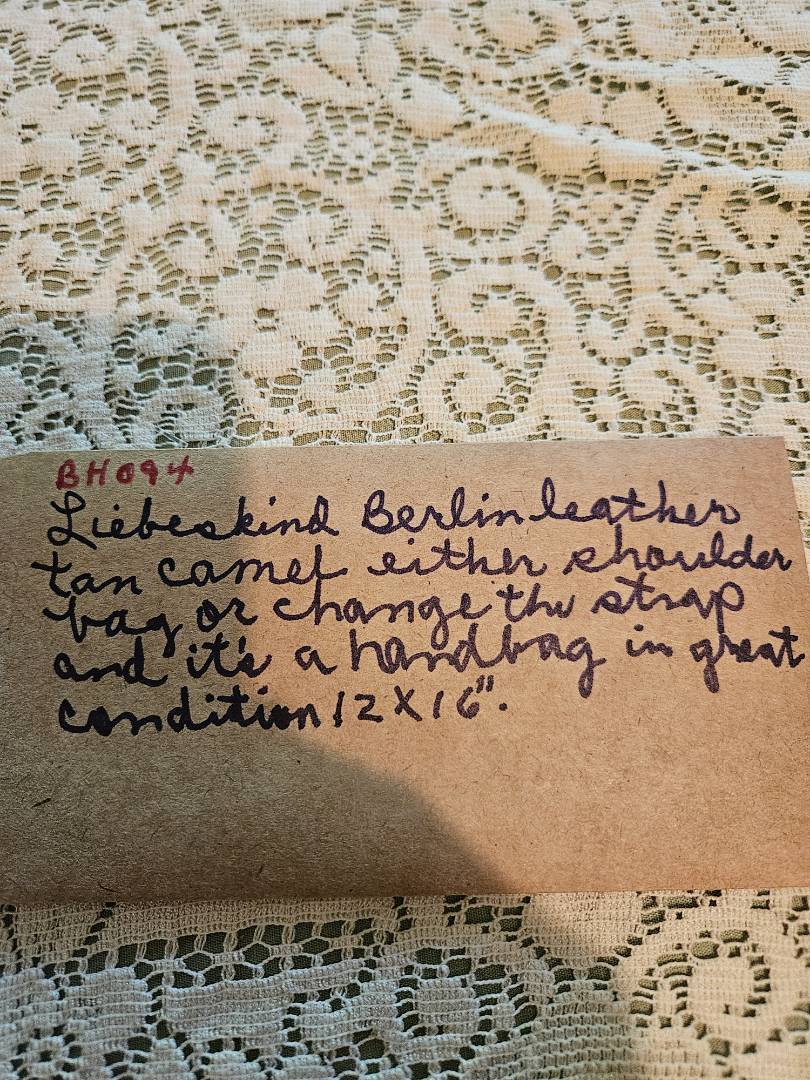 BH094
Liebeskind Berlin leather
tan camel either shoulder
bag or change the strap
and it's a handbag in great
condition 12 X 16".